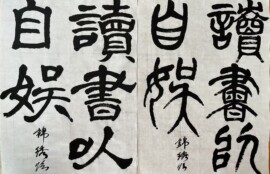 讀書以
自娛
讀書以
自娛